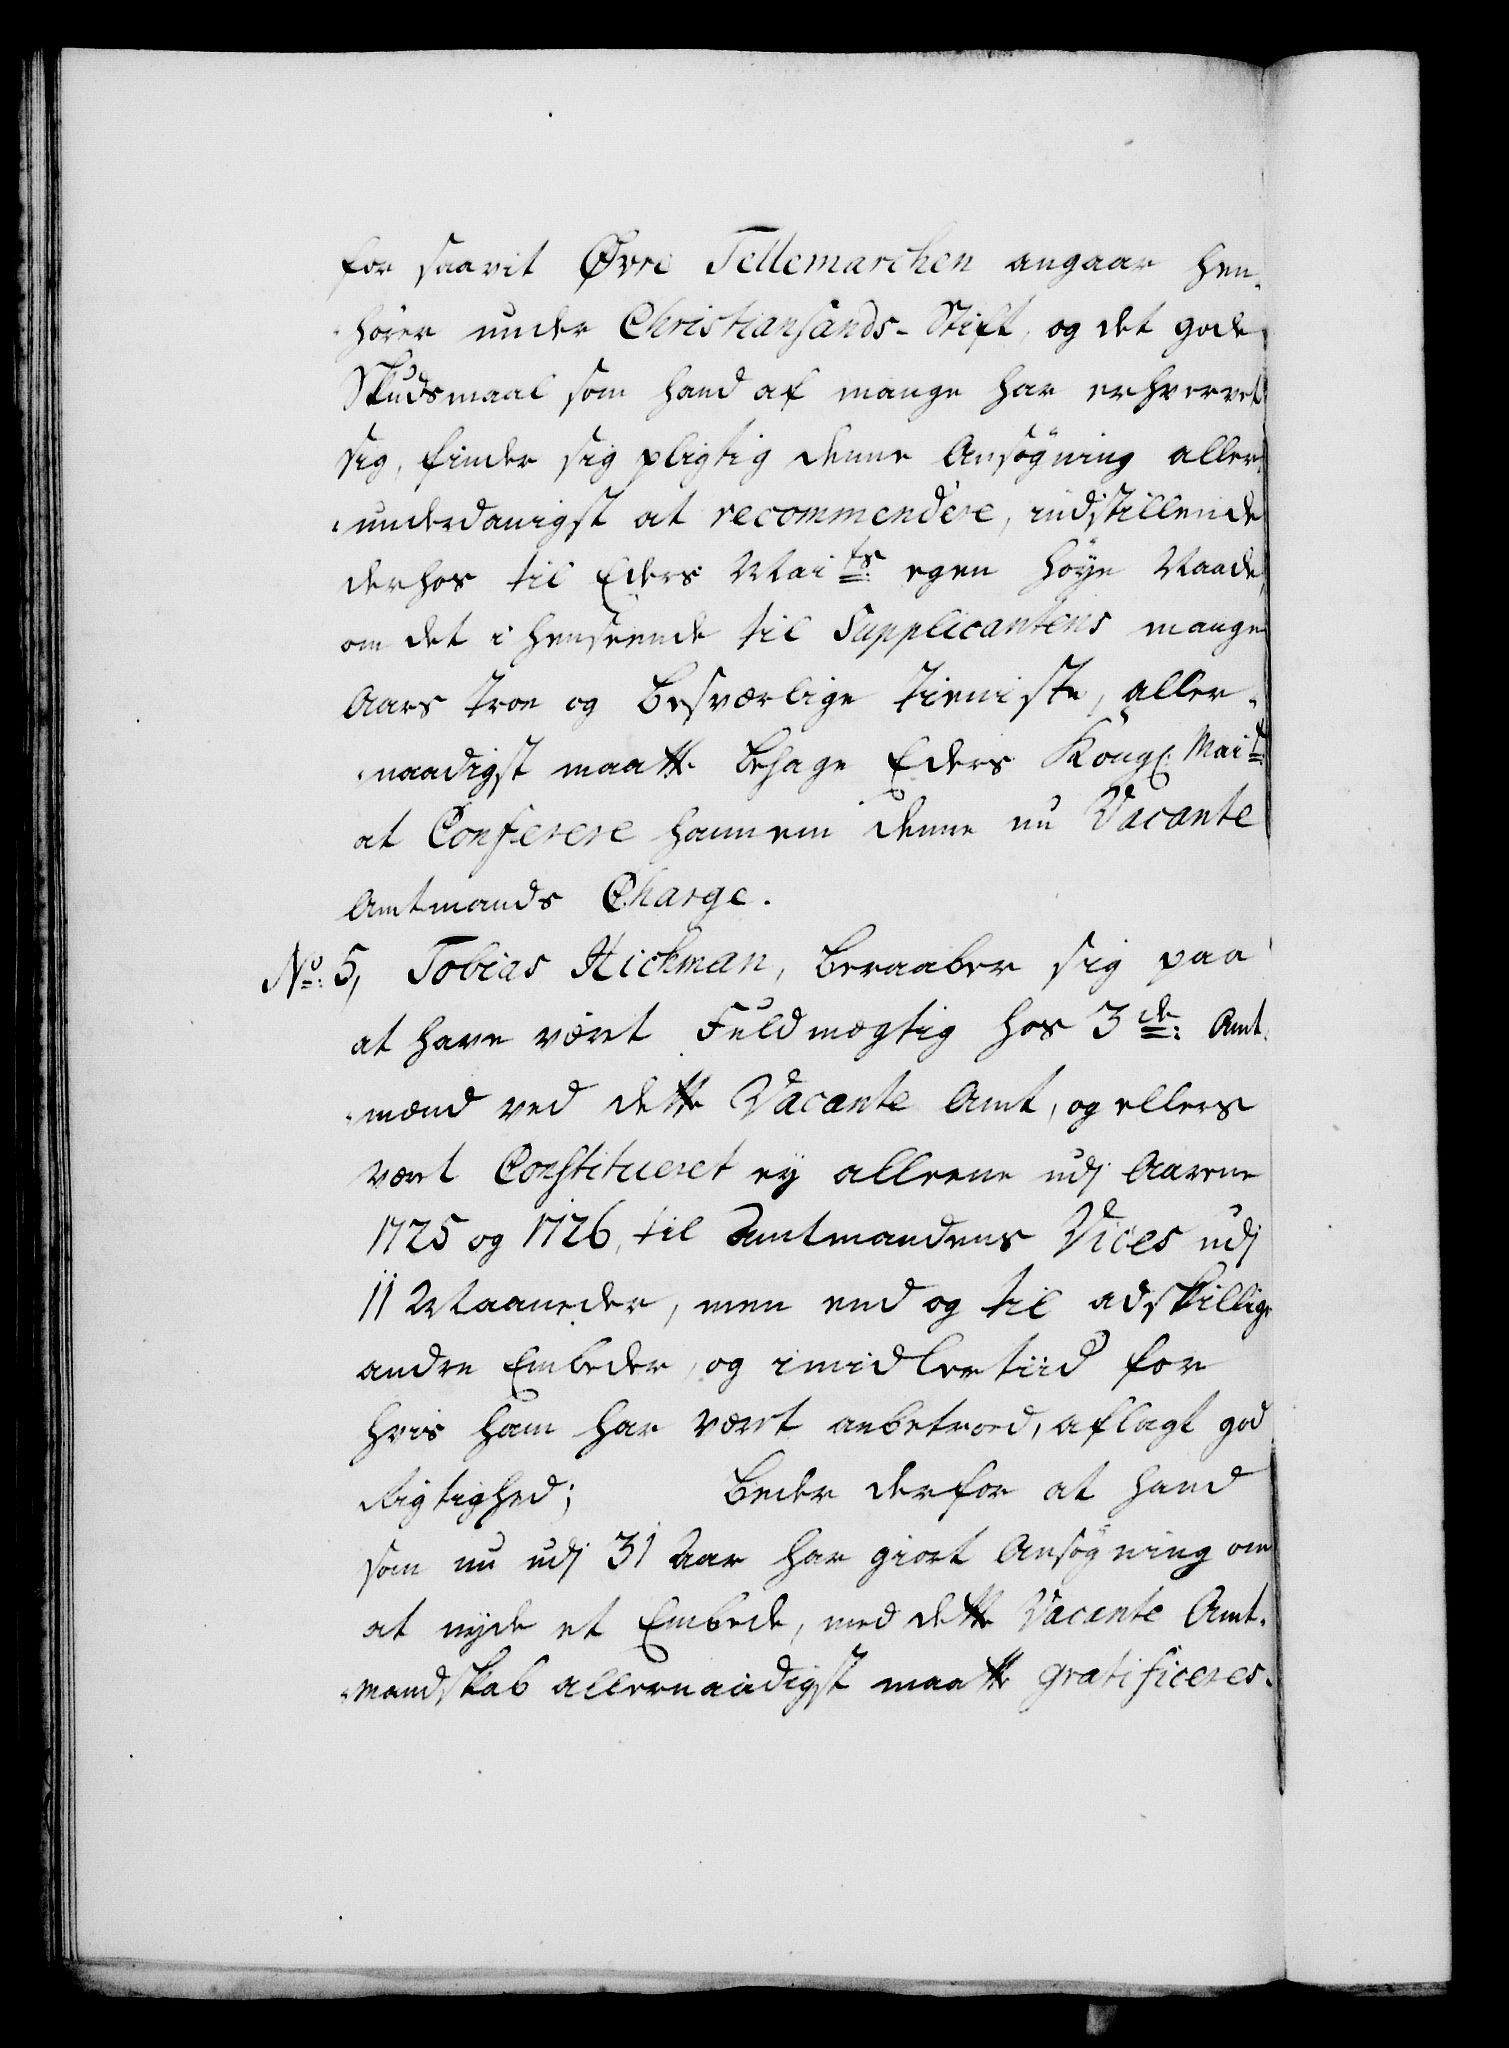 for saavit Øvre Tellemarchen angaar hen-
-hörer under Christiansands-Stift, og det gode
Skudsmaal som hand af mange har erhvervet
sig, finder sig pligtig denne Ansögning aller-
-underdanigst at recommendere, indstillende
derhos til Eders Maits: egen höye Naade,
om det i henseende til Supplicantens mange
Aars troe og besværlige tieniste, aller-
-naadigst maatte behage Eders Kongl: Mait:
at Conferere hannem denne nu Vacante
Amtmands Charge.
No: 5, Tobias Hickman, beraaber sig paa
at have været Fuldmægtig hos 3de: Amt-
-mænd ved dette Vacante Amt, og ellers
været Constitueret ey alleene udj Aarene
1725 og 1726, til Amtmandens Vices udj
11 Maaneder, men end og til adskillige
andre Embeder, og imidlertiid for
hvis ham har været anbetroed, aflagt god
Rigtighed; Beder derfor at hand
som nu udj 31 Aar har giort Ansögning om
at nyde et Embede, med dette Vacante Amt-
-mandskab allernaadigst maatte gratificeres.